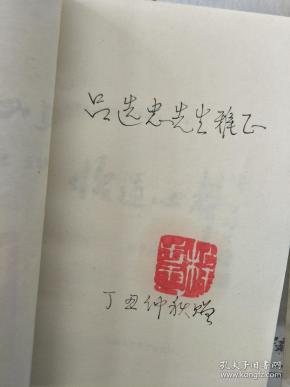 吕选忠先生雅正
丁丑仲秋赠
孔夫子旧书网